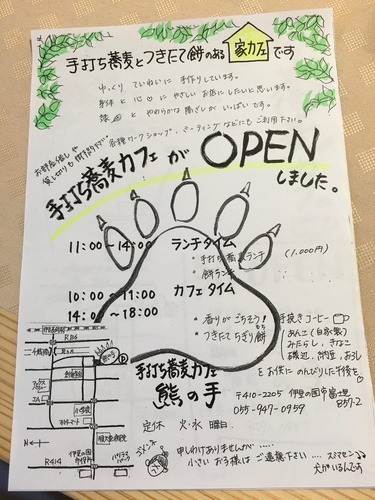 手打ち蕎麦とつきたて餅のある 家カフェ です
ゆっくり ていねいに 手作りしています。
身体と心♡に やさしい お店にしたいと思います。
緑 と やわらかな陽ざしが いっぱいです。
各種ワークショップ・ミーティングなどにもご利用下さい。
お部屋貸しや
貸し切りも
手打ち蕎麦カフェが OPEN
しました。
11:00～14:00 ランチタイム
・手打ち蕎麦ランチ (1,000円)
・餅ランチ
10:00～11:00 カフェタイム
14:00～18:00
・香りがごちそう! 手挽きコーヒー
・つきたてちぎり餅 もち
あんこ(自家製)
みたらし、きなこ
磯辺、納豆、おろし
をお供に のんびりした午後を
手打ち蕎麦カフェ
熊の手
〒410-2205 伊豆の国市富士見
857-2
055-947-0959
定休 火・水曜日
申しわけありませんが.....
小さい お子様は ご遠慮下さい.... スミマセン
犬がいるんです
ゴメンネ
R116
JA
N
R414
伊豆の国
市役所
順天堂病院